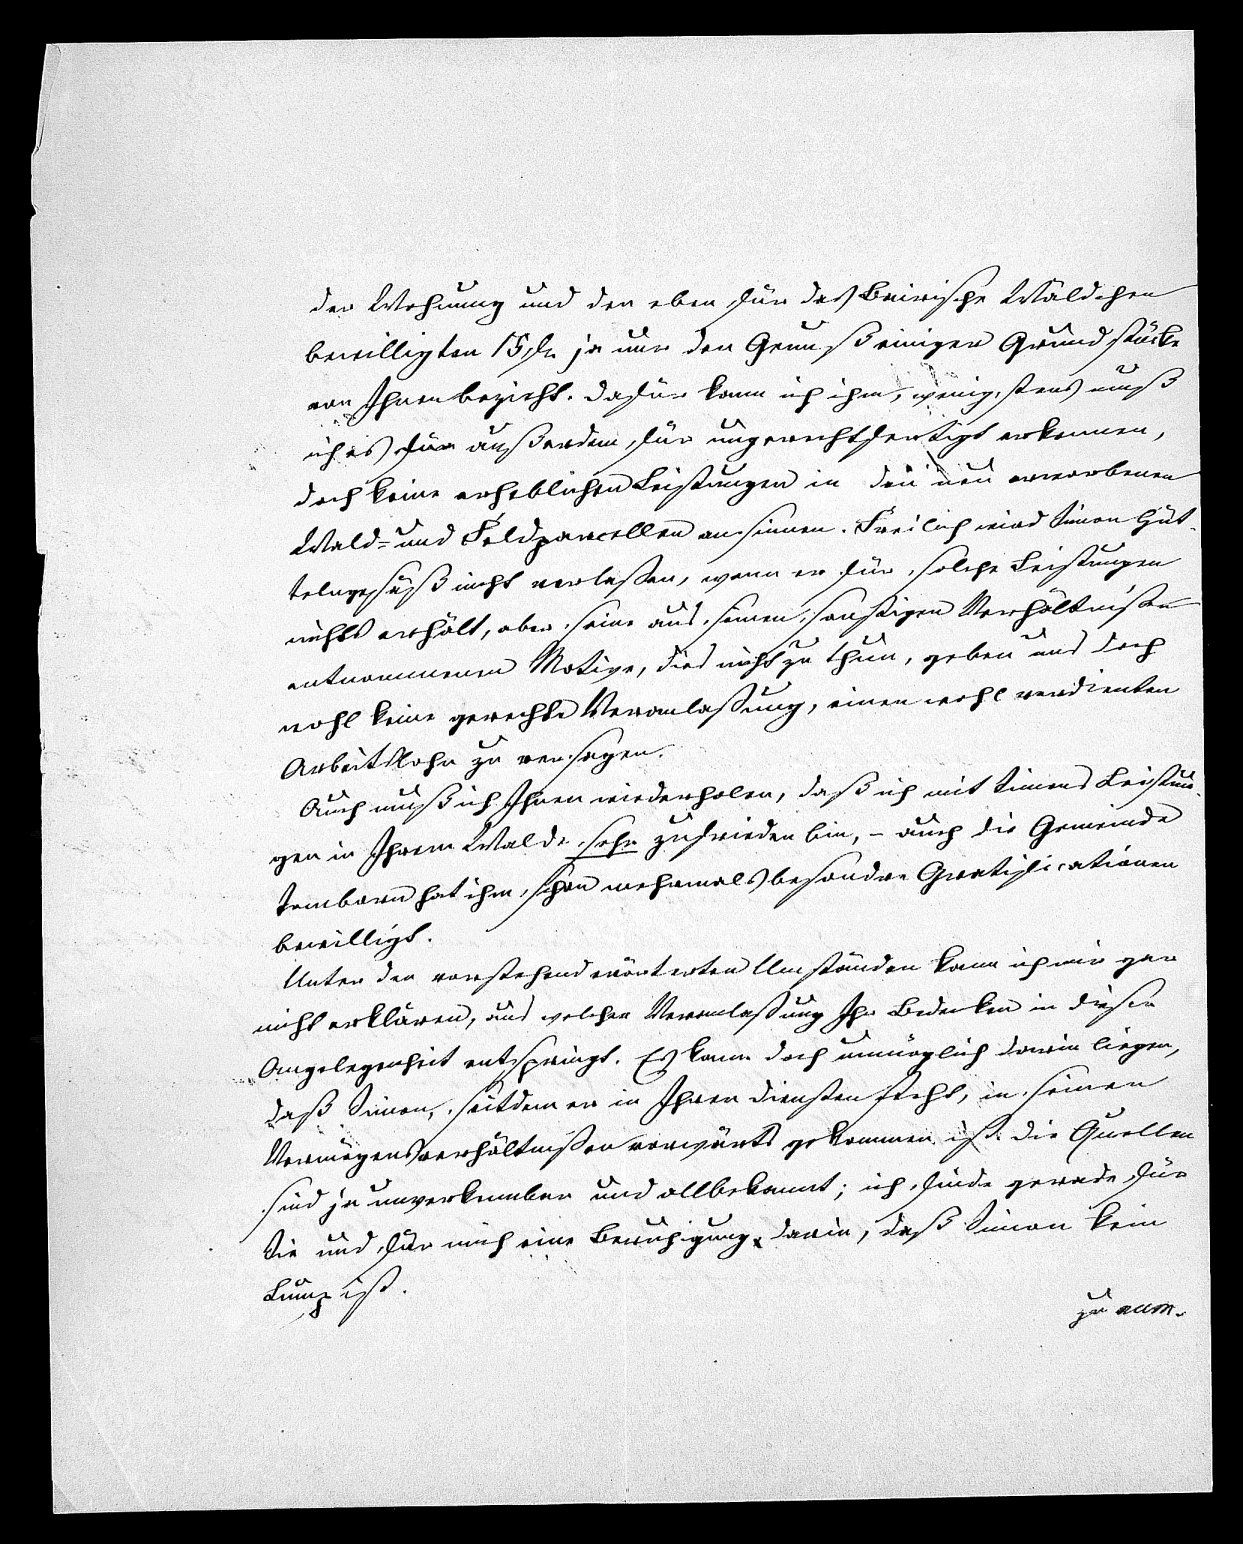 der Wohnung und der eben für das Beirische Wäldchen
bewilligten 15 fl. ja nur den Genuß einiger Grundstücke
von Ihnen bezieht. Dafür kann ich ihm, wenigstens muß
ich es für außerdem für ungerechtfertigt erkennen,
doch keine erheblichen Leistungen in den neu erworbenen
Wald- und Feldparcellen ansinnen. Freilich wird Simon Güt-
telngesäß nicht verlaßen, wenn er für solche Leistungen
nichts erhält, aber seine aus seinen sonstigen Verhältnißen
entnommenen Motive, dies nicht zu thun, geben uns doch
wohl keine gerechte Veranlaßung, einen wohl verdienten
Arbeitslohn zu versagen.
Auch muß ich Ihnen wiederholen, daß ich mit Simons Leistun-
gen in Ihrem Walde sehr zufrieden bin, – auch die Gemeinde
hat ihm schon mehrmals besondre Gratificationen
bewilligt.
Unter den vorstehend erörterten Umständen kann ich mir gar
nicht erklären, aus welcher Veranlaßung Ihr Bedenken in dieser
Angelegenheit entspringt. Es kann doch unmöglich darin liegen,
daß Simon, seitdem er in Ihren Diensten steht, in seinen
Vermögensverhältnißen vorwärts gekommen ist. Die Quellen
sind ja unverkennbar und allbekannt; ich finde gerade für
Sie und für mich eine Beruhigung darin, daß Simon kein
Lump ist.
zu